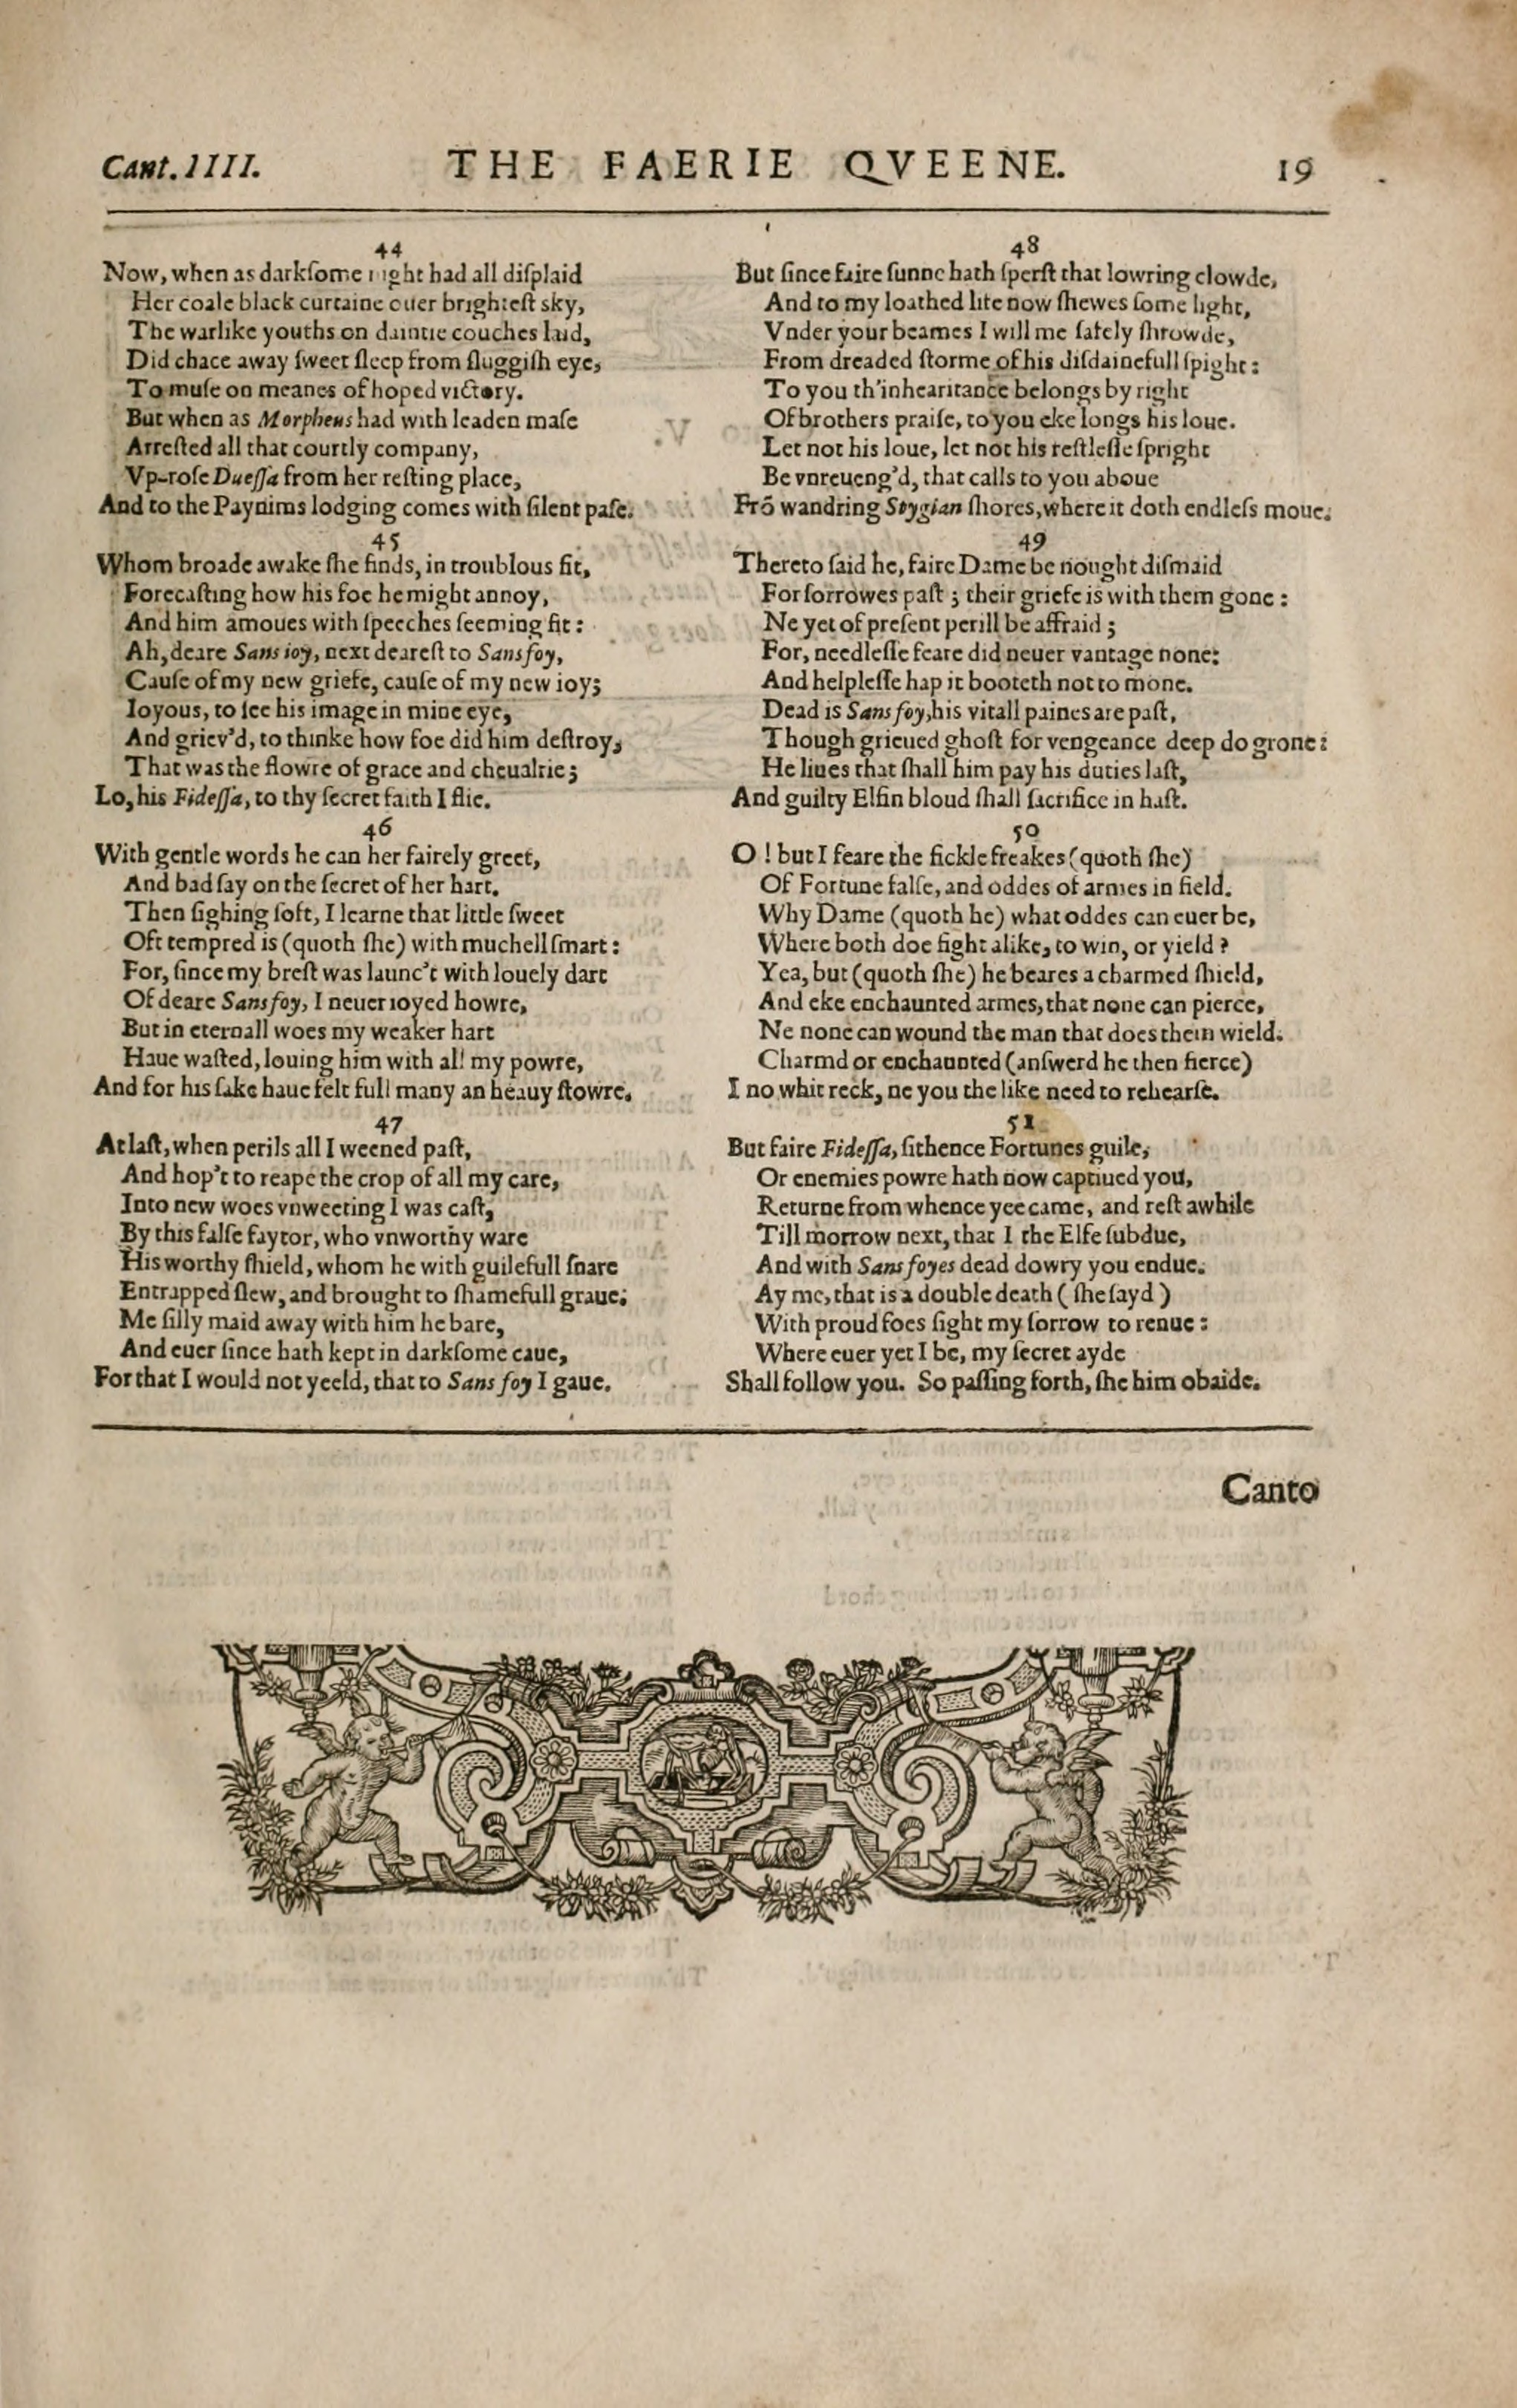 Cant. IIII. THE FAERIE QVEENE. 19
44
Now, when as darkſome night had all diſplaid
Her coale black curtaine ouer brighteſt sky,
The warlike youths on daintie couches laid,
Did chace away ſweet ſleep from ſluggiſh eye,
To muſe on meanes of hoped victory.
But when as Morpheus had with leaden maſe
Arreſted all that courtly company,
Vp-roſe Dueſſa from her reſting place,
And to the Paynims lodging comes with ſilent paſe.
45
Whom broade awake ſhe finds, in troublous fit,
Forecaſting how his foe he might annoy,
And him amoues with ſpeeches ſeeming fit:
Ah, deare Sans ioy, next deareſt to Sans foy,
Cauſe of my new griefe, cauſe of my new ioy;
Ioyous, to ſee his image in mine eye,
And griev'd, to thinke how foe did him deſtroy,
That was the flowre of grace and cheualrie;
Lo, his Fideſſa, to thy ſecret faith I flie.
46
With gentle words he can her fairely greet,
And bad ſay on the ſecret of her hart.
Then ſighing ſoft, I learne that little ſweet
Oft tempred is (quoth ſhe) with muchell ſmart:
For, ſince my breſt was launc't with louely dart
Of deare Sans foy, I neuer ioyed howre,
But in eternall woes my weaker hart
Haue waſted, louing him with all my powre,
And for his ſake haue felt full many an heauy ſtowre.
47
At laſt, when perils all I weened paſt,
And hop't to reape the crop of all my care,
Into new woes vnweeting I was caſt,
By this falſe faytor, who vnworthy ware
His worthy ſhield, whom he with guilefull ſnare
Entrapped ſlew, and brought to ſhamefull graue;
Me ſilly maid away with him he bare,
And euer ſince hath kept in darkſome caue,
For that I would not yeeld, that to Sans foy I gaue.
48
But ſince faire ſunne hath ſperſt that lowring clowde,
And to my loathed life now ſhewes ſome light,
Vnder your beames I will me ſafely ſhrowde,
From dreaded ſtorme of his diſdainefull ſpight:
To you th'inhearitance belongs by right
Of brothers praiſe, to you eke longs his loue.
Let not his loue, let not his reſtleſſe ſpright
Be vnreueng'd, that calls to you aboue
Frō wandring Stygian ſhores, where it doth endleſs moue.
49
Thereto ſaid he, faire Dame be nought diſmaid
For ſorrowes paſt; their griefe is with them gone:
Ne yet of preſent perill be affraid;
For, needleſſe feare did neuer vantage none:
And helpleſſe hap it booteth not to mone.
Dead is Sans foy, his vitall paines are paſt,
Though grieued ghoſt for vengeance deep do grone:
He liues that ſhall him pay his duties laſt,
And guilty Elfin bloud ſhall ſacrifice in haſt.
50
O! but I feare the fickle freakes (quoth ſhe)
Of Fortune falſe, and oddes of armes in field.
Why Dame (quoth he) what oddes can euer be,
Where both doe fight alike, to win, or yield?
Yea, but (quoth ſhe) he beares a charmed ſhield,
And eke enchaunted armes, that none can pierce,
Ne none can wound the man that does them wield.
Charmd or enchaunted (anſwerd he then fierce)
I no whit reck, ne you the like need to rehearſe.
51
But faire Fideſſa, ſithence Fortunes guile,
Or enemies powre hath now captiued you,
Returne from whence yee came, and reſt awhile
Till morrow next, that I the Elfe ſubdue,
And with Sans foyes dead dowry you endue.
Ay me, that is a double death (ſhe ſayd)
With proud foes ſight my ſorrow to renue:
Where euer yet I be, my ſecret ayde
Shall follow you. So paſſing forth, ſhe him obaide.
Canto